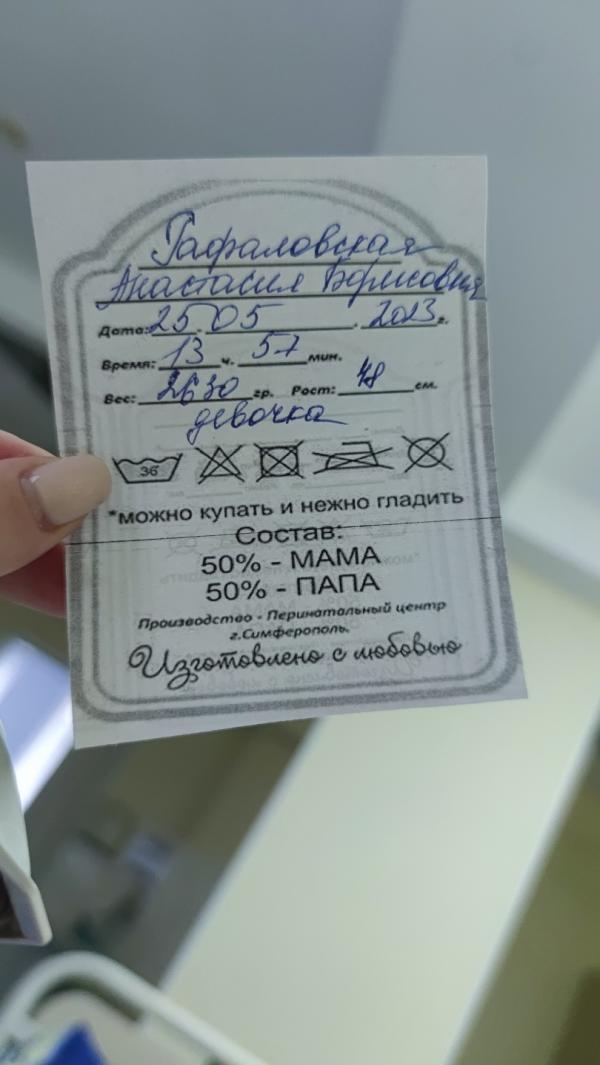 Гафаловская
Анастасия Борисовна
Дата: 25. 05. 2023 г.
Время: 13 ч. 57 мин.
Вес: 2630 гр. Рост: 48 см.
девочка
36
*можно купать и нежно гладить
Состав:
50% - МАМА
50% - ПАПА
Производство - Перинатальный центр
г.Симферополь.
Изготовлено с любовью